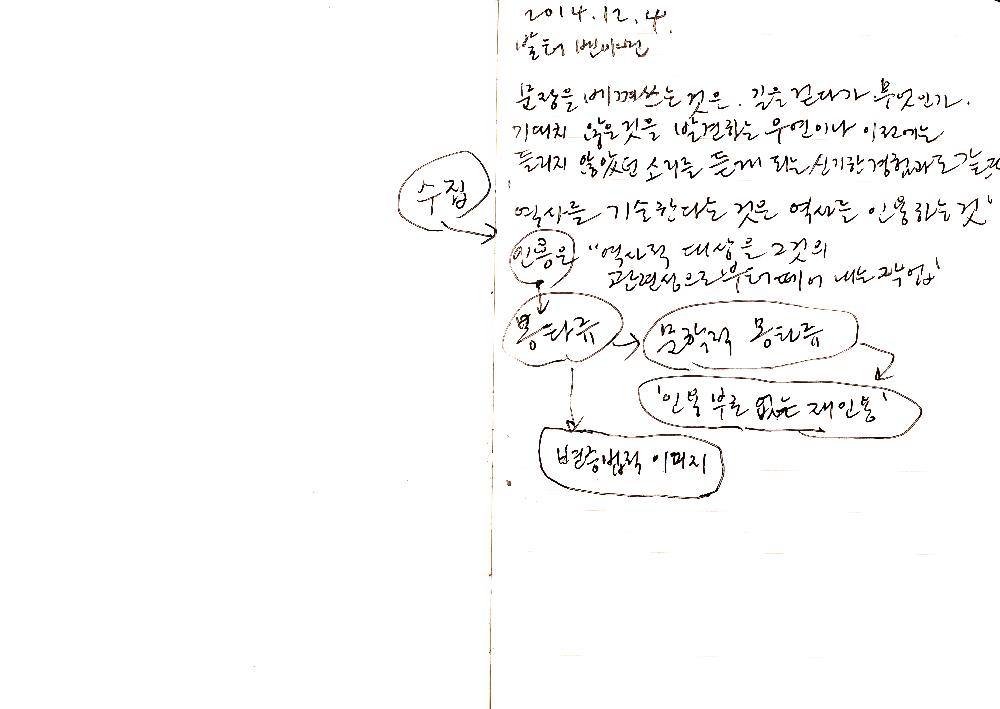 2014.12.4.
발터 벤야민
문장을 베껴쓰는 것은. 길을 걷다가 무엇인가.
기대치 않은 것을 발견하는 우연이나 이전에는
들리지 않았던 소리를 듣게 되는 신기한 경험과도 같
수집
역사를 기술한다는 것은 역사를 인용하는 것"
인용은 "역사적 대상을 그것의
관련성으로부터 떼어 내는 작업"
몽타쥬
문학적 몽타쥬
'인용 부호 없는 재인용'
변증법적 이미지